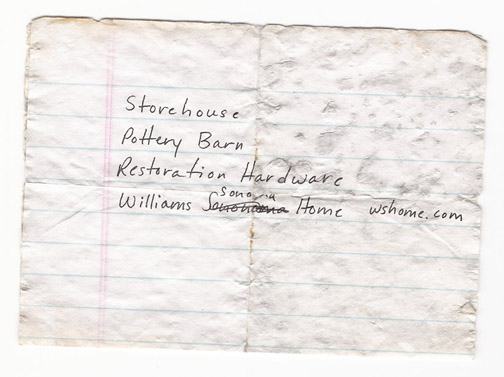 Storehouse
Pottery Barn
Restoration Hardware
Williams Sonoma Home wshome.com